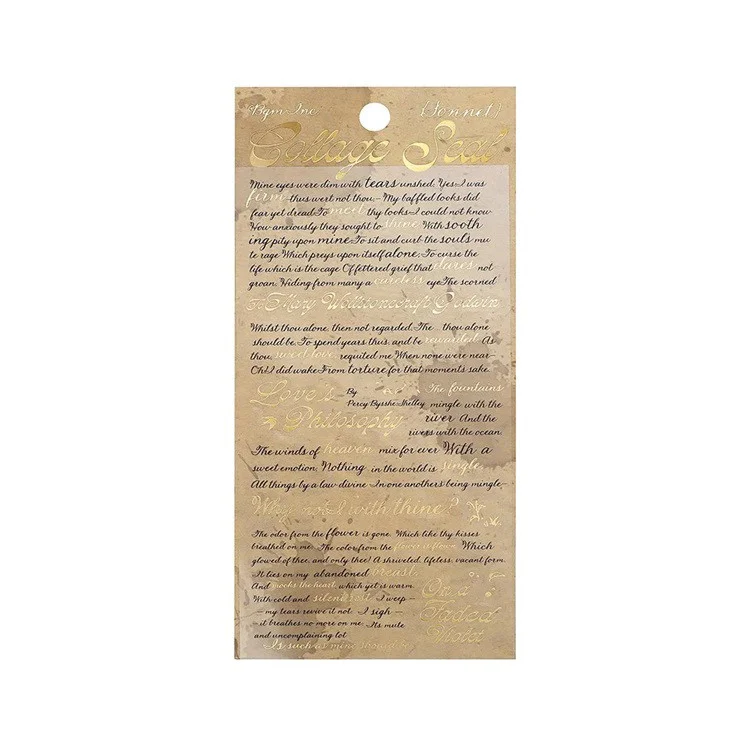 Bgm Inc.
(Sonnet)
Collage Seal
Mine eyes were dim with tears unshed; Yes, I was
firm—thus wert not thou.— My baffled looks did
fear yet dread To meet thy looks—I could not know
How anxiously they sought to shine With sooth
ing pity upon mine. To sit and curb the soul's mu
te rage Which preys upon itself alone; To curse the
life which is the cage Of fettered grief that dares not
groan, Hiding from many a careless eye The scorned
To Mary Wollstonecraft Godwin
Whilst thou alone, then not regarded, The thou alone
should be, To spend years thus, and be rewarded, As
thou, sweet love, requited me When none were near—
Oh! I did wake From torture for that moments sake.
Love's Philosophy
By
Percy Bysshe Shelley
The fountains
mingle with the
river And the
rivers with the ocean,
The winds of heaven mix for ever With a
sweet emotion; Nothing in the world is single,
All things by a law divine In one anothers being mingle—
Why not I with thine?
The odor from the flower is gone, Which like thy kisses
breathed on me; The color from the flower is flown, Which
glowed of thee, and only thee! A shriveled, lifeless, vacant form,
It lies on my abandoned breast,
And mocks the heart, which yet is warm,
With cold and silent rest. I weep—
—my tears revive it not; I sigh—
it breathes no more on me: Its mute
and uncomplaining lot
Is such as mine should be.
On a
Faded
Violet